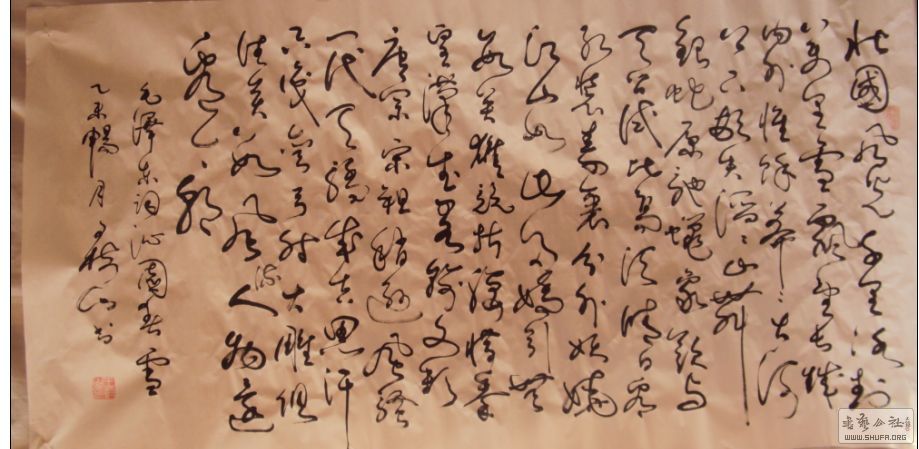 北國風光千里冰封
万里雪飄望长城
内外惟餘莽々大河
上下頓失滔々山舞
銀蛇原馳蠟象欲与
天公试比高须晴日看
红装素裹分外妖娆
江山如此多嬌引无
数英雄競折腰惜秦
皇漢武略输文彩
唐宗宋祖稍遜風騷
一代天骄成吉思汗
只識弯弓射大雕俱
往矣数風流人物還
看今朝
毛澤东詞沁園春雪
乙未暢月
书
WWW.SHUFA.ORG